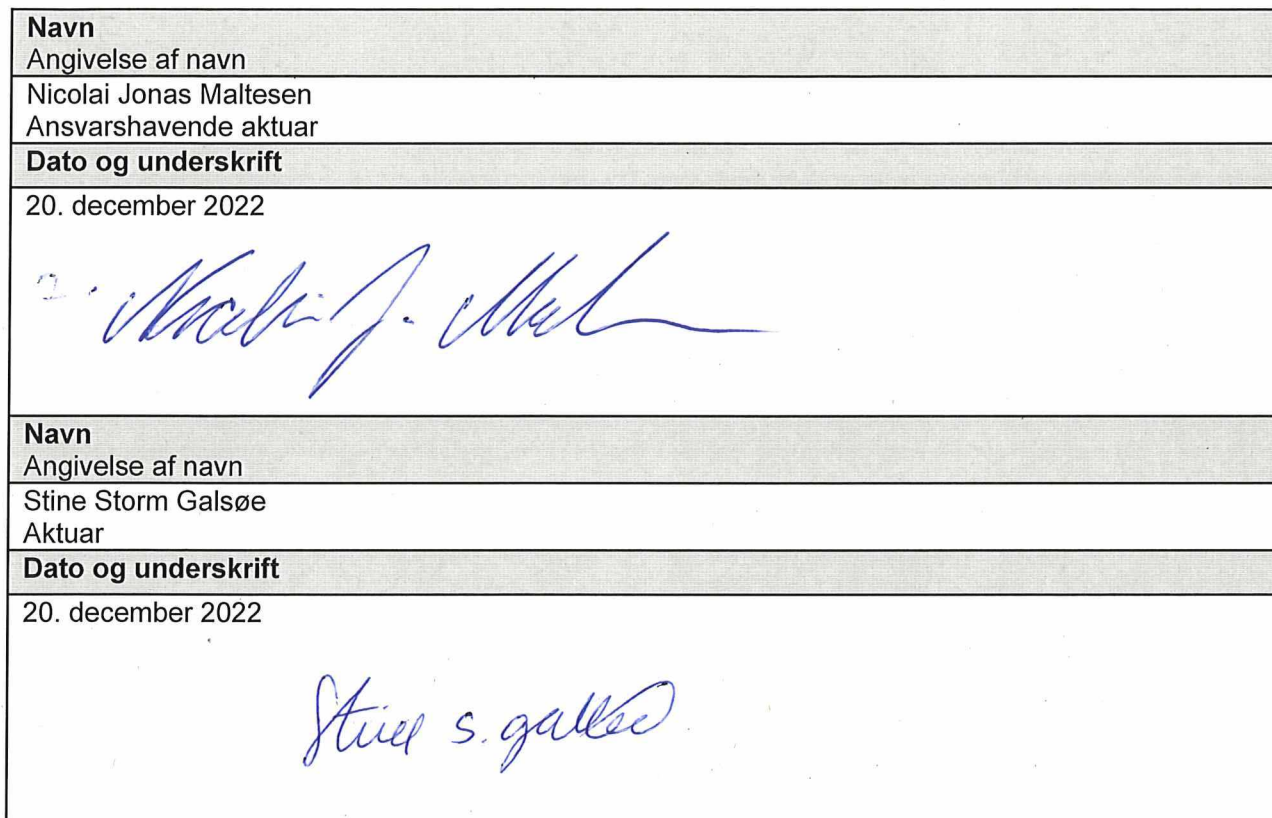 Navn
Angivelse af navn
Nicolai Jonas Maltesen
Ansvarshavende aktuar
Dato og underskrift
20. december 2022
Navn
Angivelse af navn
Stine Storm Galsøe
Aktuar
Dato og underskrift
20. december 2022
Stine S. Galsøe